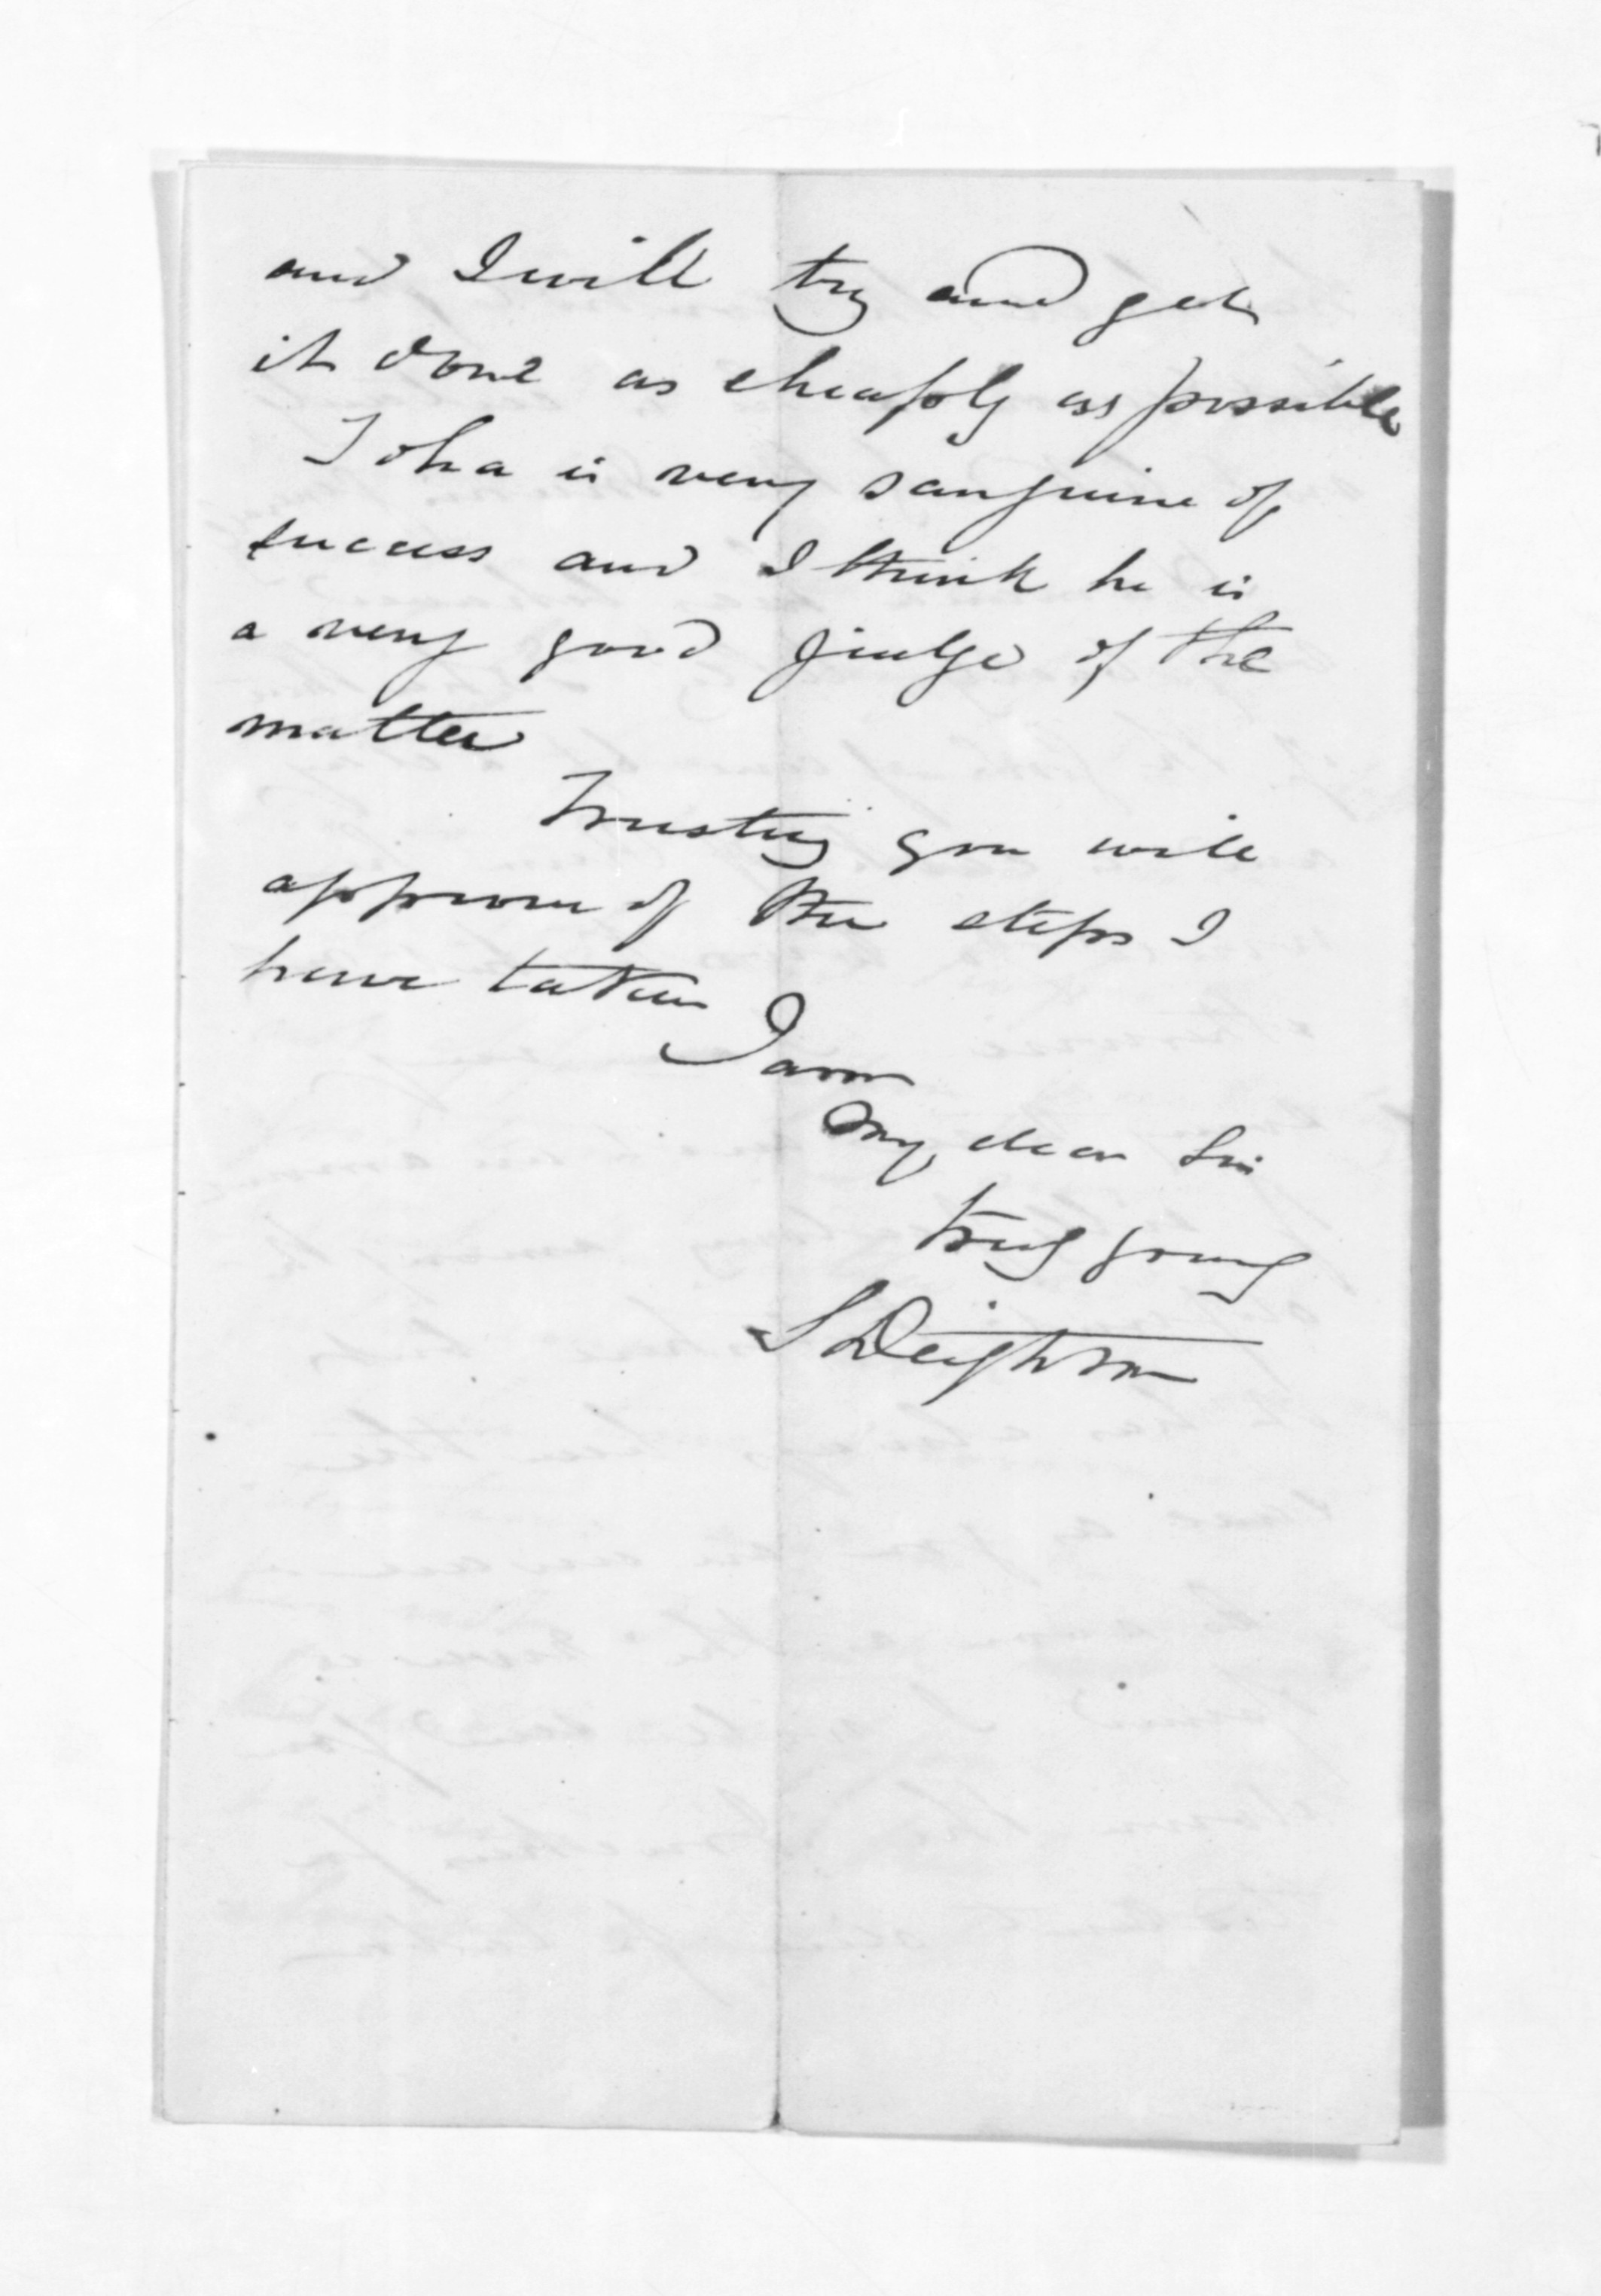 and I will try and get
it done as cheaply as possible
Ioha is very sanguine of
success and I think he is
a very good judge of the
matter
Trusting you will
approve of the steps I
have taken
I am
My dear Sir
truly yours
S Deighton